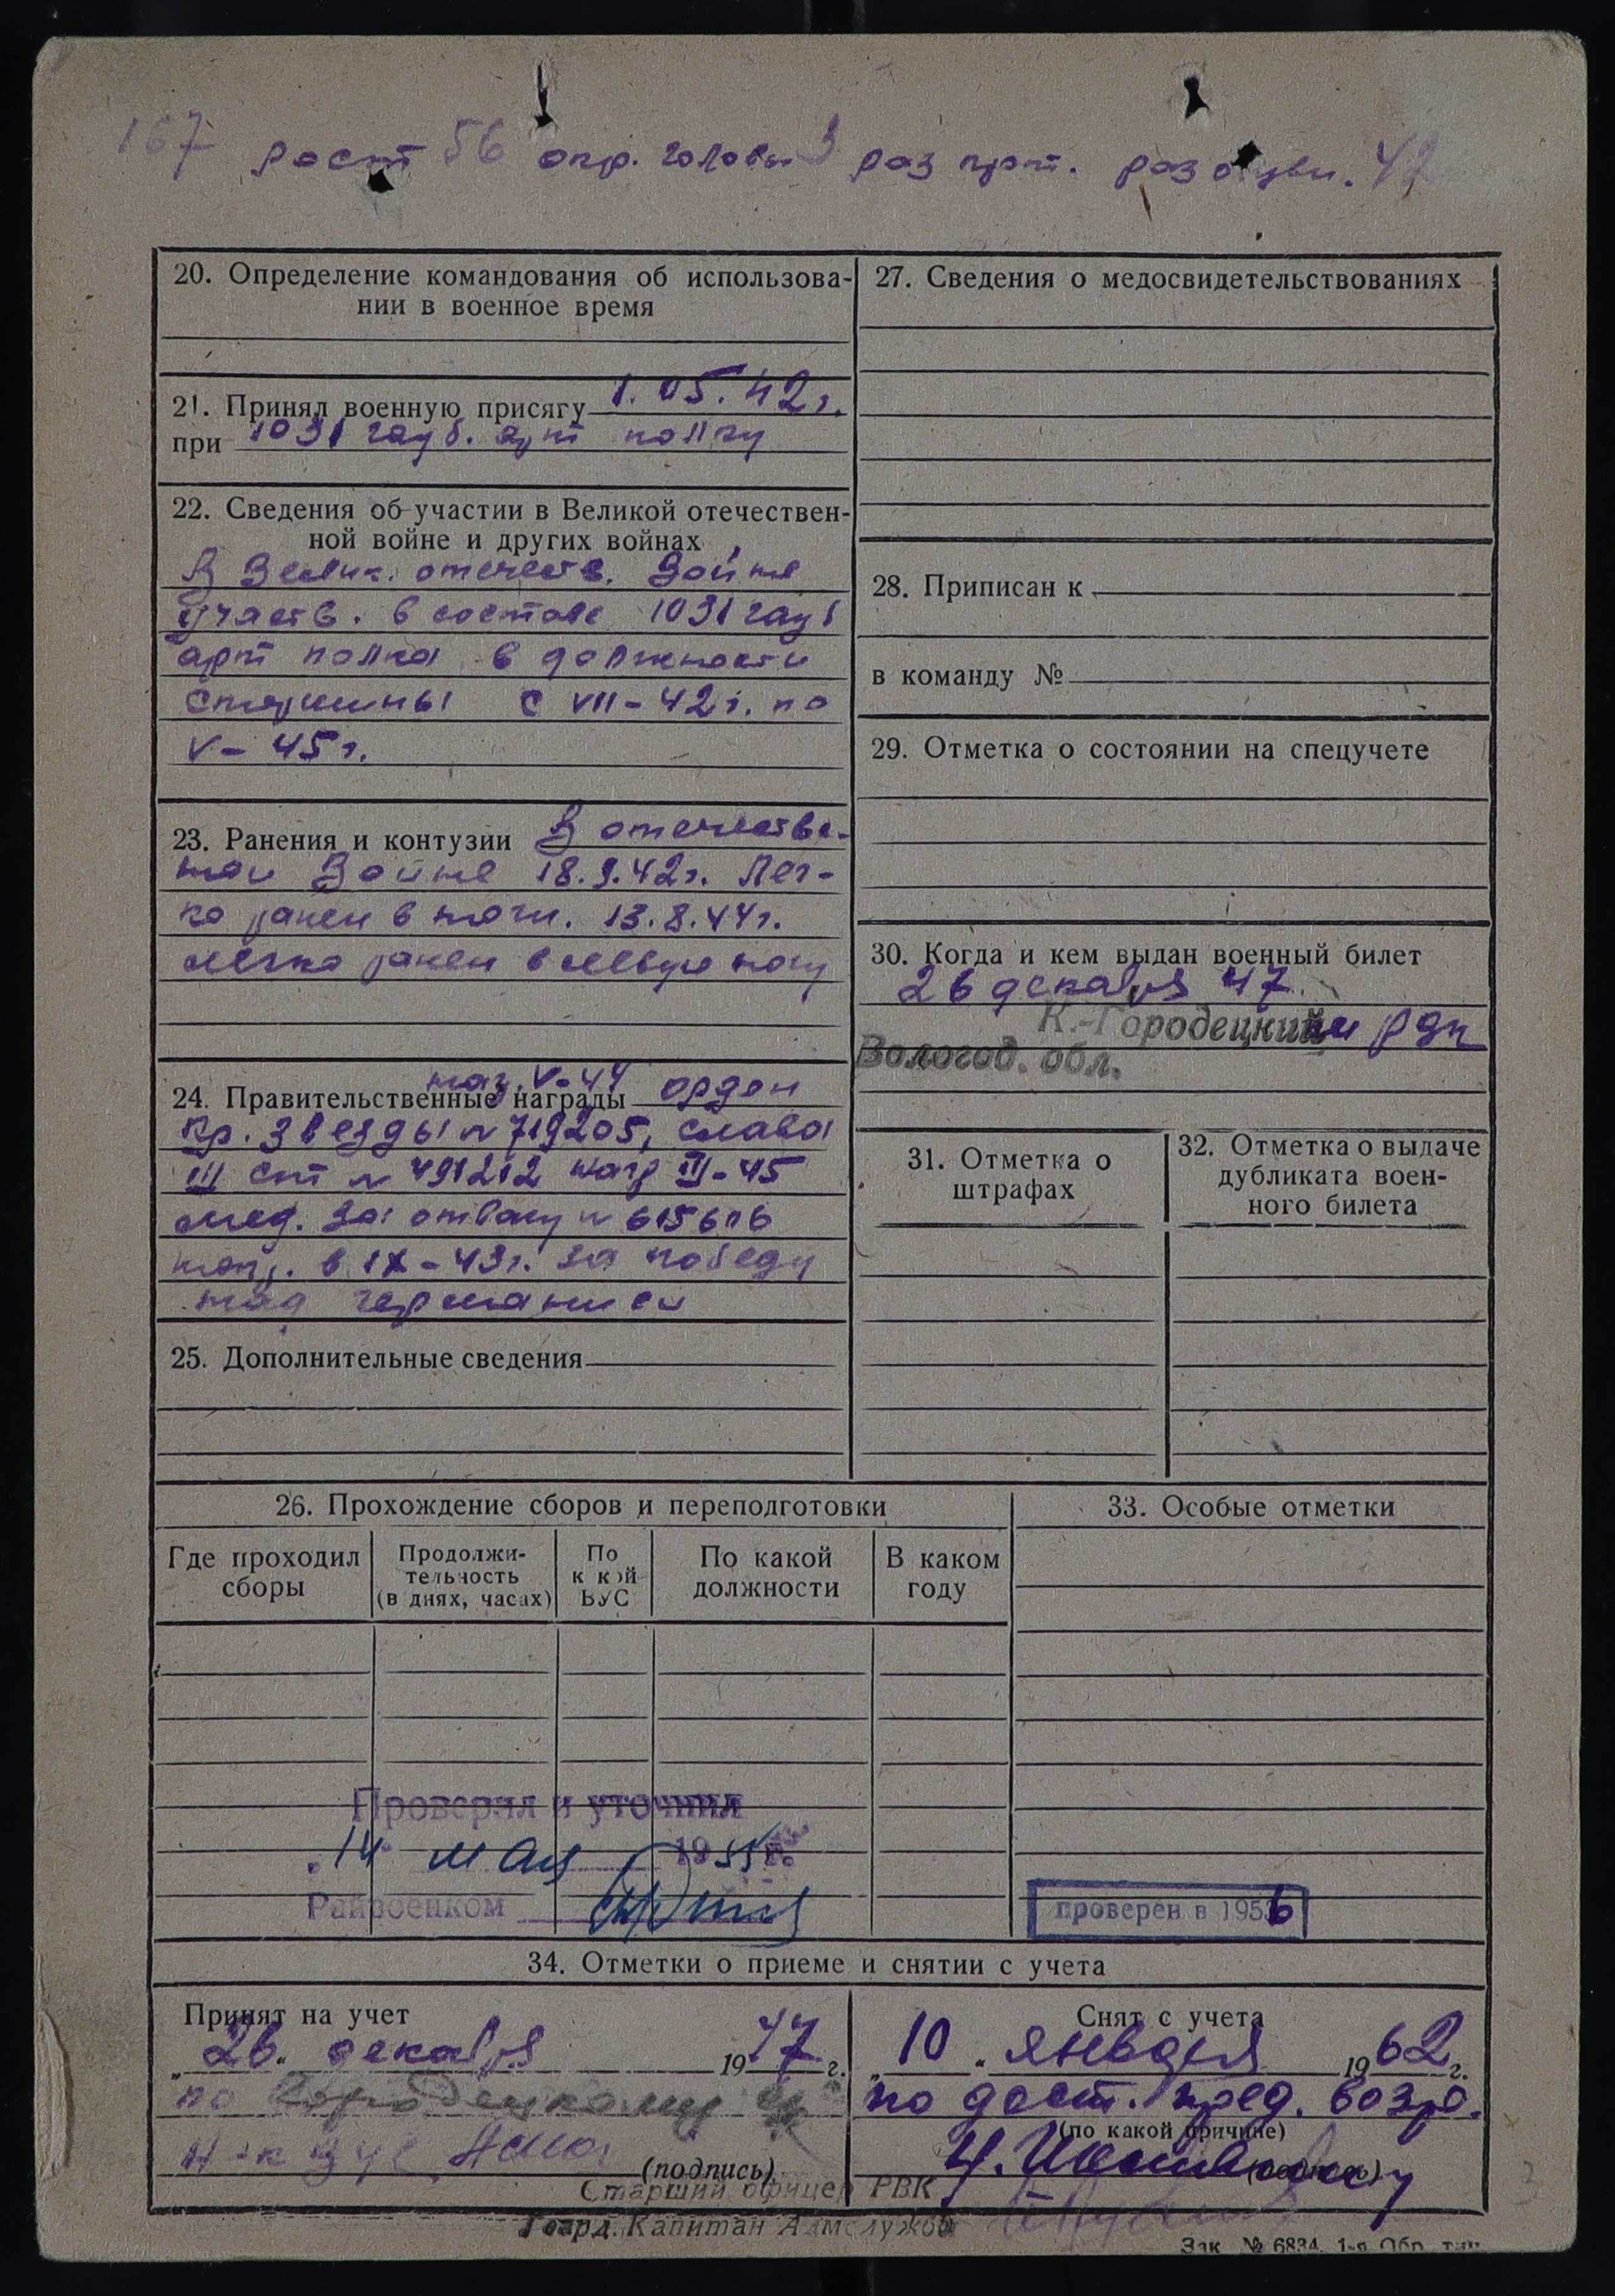 167 рост 56 окр. головы 3 раз прот. раз обуви. 42
20. Определение командования об использова-
нии в военное время
21. Принял военную присягу 1.05.42 г.
при 1031 гауб. арт полку
22. Сведения об участии в Великой отечествен-
ной войне и других войнах
В Велик. отечеств. Войне
участв. в составе 1031 гауб
арт полка в должности
старшины с VII-42 г. по
V-45 г.
23. Ранения и контузии В отечестве-
ной Войне 18.9.42 г. Лег-
ко ранен в ноги. 13.8.44 г.
легко ранен в левую ногу
наг. V-44
24. Правительственные награды орден
Кр. Звезды № 719205, слава
III ст № 491212 нагр III-45
мед. За отвагу № 615616
нагр. в IX-43 г. за победу
над германией
25. Дополнительные сведения
26. Прохождение сборов и переподготовки
Где проходил сборы
Продолжи-
тельность
(в днях, часах)
По
к кой
ВУС
По какой
должности
В каком
году
Проверил и уточнил
"14" мая 1955 г.
Райвоенком
27. Сведения о медосвидетельствованиях
28. Приписан к
в команду №
29. Отметка о состоянии на спецучете
30. Когда и кем выдан военный билет
26 декабря 47
К.-Городецким РВК
Вологод. обл.
31. Отметка о
штрафах
32. Отметка о выдаче
дубликата воен-
ного билета
33. Особые отметки
проверен в 1956
34. Отметки о приеме и снятии с учета
Принят на учет
"26" декабря 1947 г.
по Городецкому
(подпись)
Снят с учета
"10" января 1962 г.
по дост. пред. возр.
(по какой причине)
(подпись)
Старший офицер РВК
Гвард. Капитан Адмслужбы
Зак. № 6834. 1-я Обр. тип.